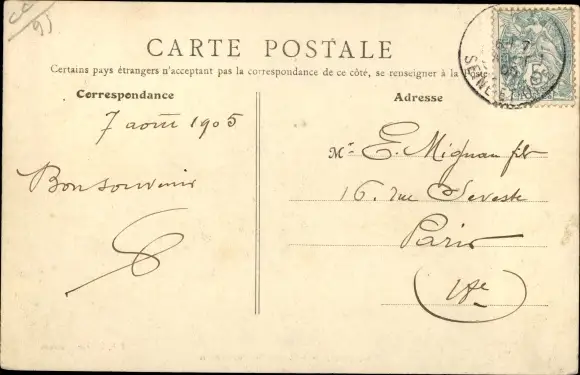 CC
95
CARTE POSTALE
Certains pays étrangers n'acceptant pas la correspondance de ce côté, se renseigner à la Poste
Correspondance
Adresse
7 août 1905
Bon souvenir
Mr E. Mignan fils
16, rue Seveste
Paris
(18e)
SEINE-ET-OISE